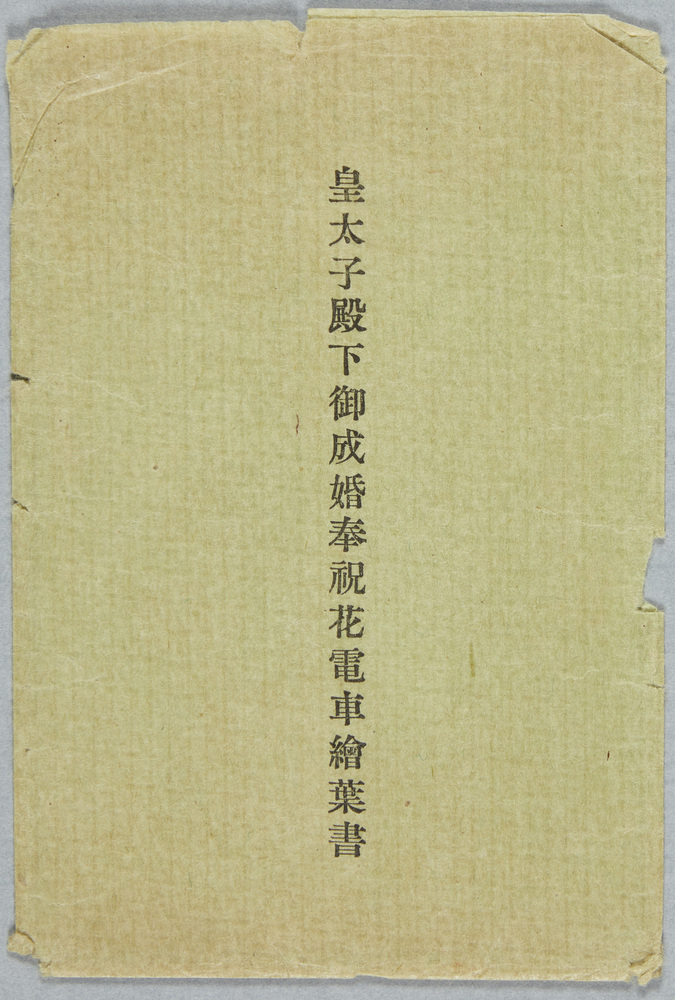 皇太子殿下御成婚奉祝花電車繪葉書